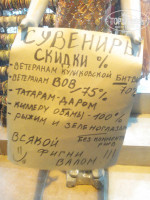 СУВЕНИРЫ
СКИДКИ %
- ВЕТЕРАНАМ КУЛИКОВСКОЙ БИТВЫ
- ВЕТЕРАНАМ ВОВ - 75%
- ТАТАРАМ - ДАРОМ
- КИЛЛЕРУ ОБАМЫ - 100%
- РЫЖИМ И ЗЕЛЕНОГЛАЗЫМ
ВСЯКОЙ
ФИГНИ
ВАЛОМ !!!